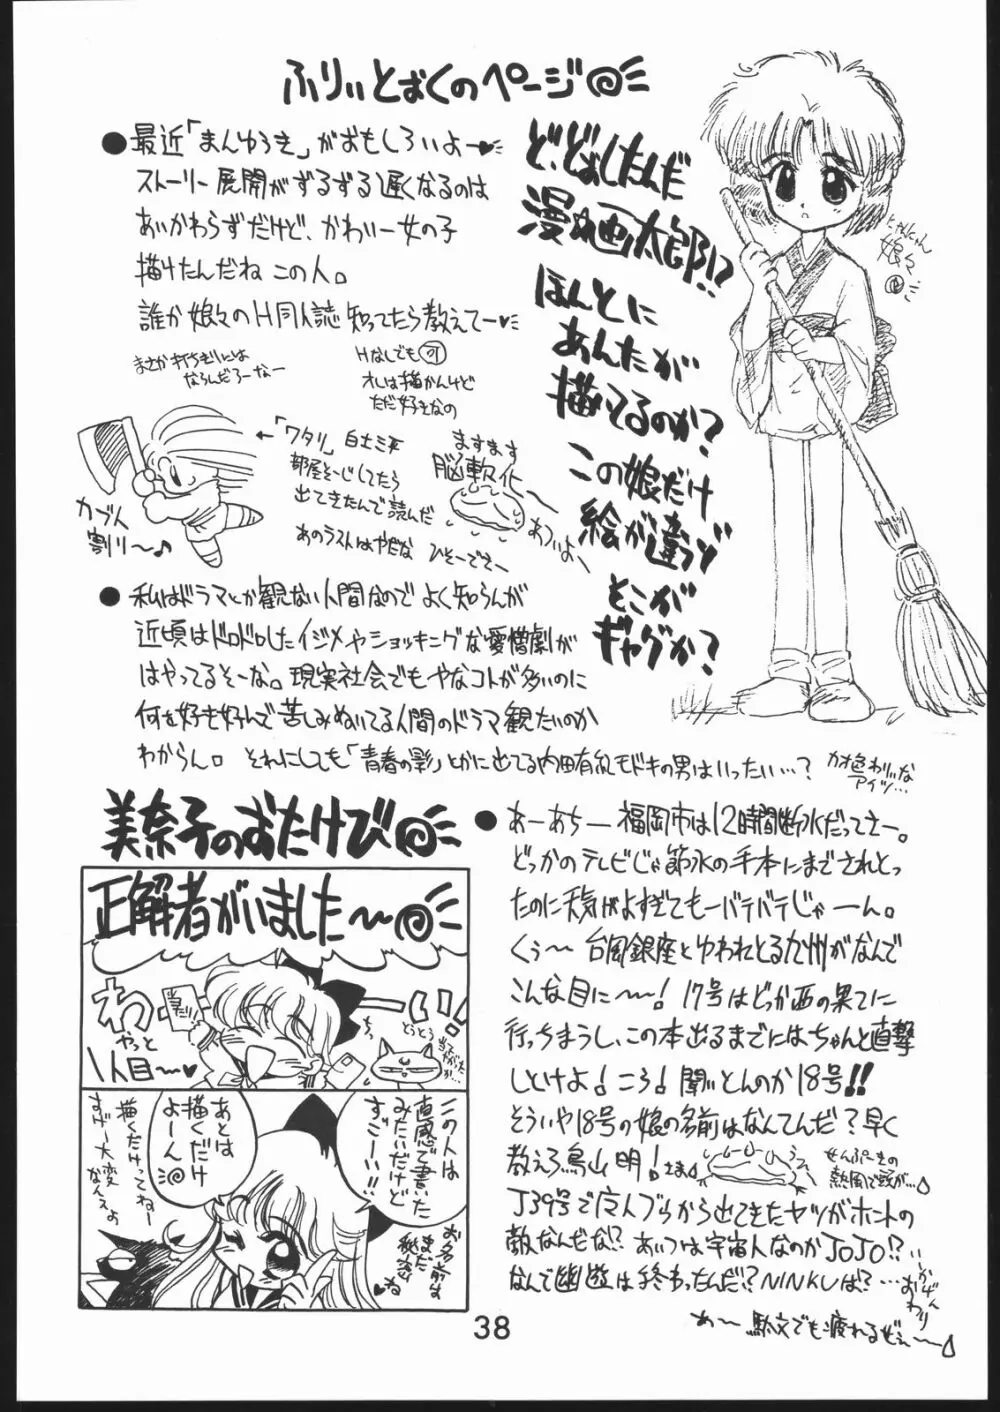 ふりぃとぉくのページ
●最近「まんゆうき」がおもしろいよー
ストーリー展開がずるずる遅くなるのは
あいかわらずだけど、かわいー女の子
描けたんだね この人。
誰か娘々のH同人誌知ってたら教えてー
まさか打ちきりには
ならんだろーなー
Hなしでも可
オレは描かんけど
ただ好きなの
ど、どぉしたんだ
漫☆画太郎!?
ほんとに
あんたが
描いてるのか?
この娘だけ
絵が違うぞ
そこが
ギャグか?
にゃんにゃん
娘々
←「ワタリ」白土三平
部屋そーじしてたら
出てきたんで読んだ
あのラストはやだな
カブト
割り〜♪
ますます
脳軟化〜
あついよ〜
●私はドラマとか観ない人間なのでよく知らんが
近頃はドロドロしたイジメやショッキングな愛憎劇が
はやってるそーな。現実社会でもやなコトが多いのに
何を好き好んで苦しみぬいてる人間のドラマ観たいのか
わからん。それにしても「青春の影」とかに出てる内田有紀モドキの男はいったい…?
美奈子のおたけび
正解者がいました〜
わーい!
やっと
1人目〜
当たり!
とうとう
この人は
直感で書いた
みたいだけど
すごーい!!
お名前は
まだ
秘密
あとは
描くだけ
よーん
描くだけってねー
すげー大変
なんえよ
●あーあちー 福岡市は12時間断水だってさー。
どっかのテレビじゃ節水の手本にまでされとっ
たのに天気がよすぎてもーバテバテじゃーん。
くぅ〜 台風銀座とゆわれとる九州がなんで
こんな目に〜! 17号はどっか西の果てに
行っちまうし、この本出るまでにはちゃんと直撃
しとけよ!ころ!聞いとんのか18号!!
そういや18号の娘の名前はなんてんだ?早く
教えろ鳥山明!さま
せんぷーきの
熱風で頭が…
J39号で広人ブウから出てきたヤツがホントの
敵なんだな!?あいつは宇宙人なのかJOJO!?
なんで幽遊は終わったんだ!?NINKUは?…
いいかげん
おわり
あ〜 駄文でも疲れるぜぇ〜
38